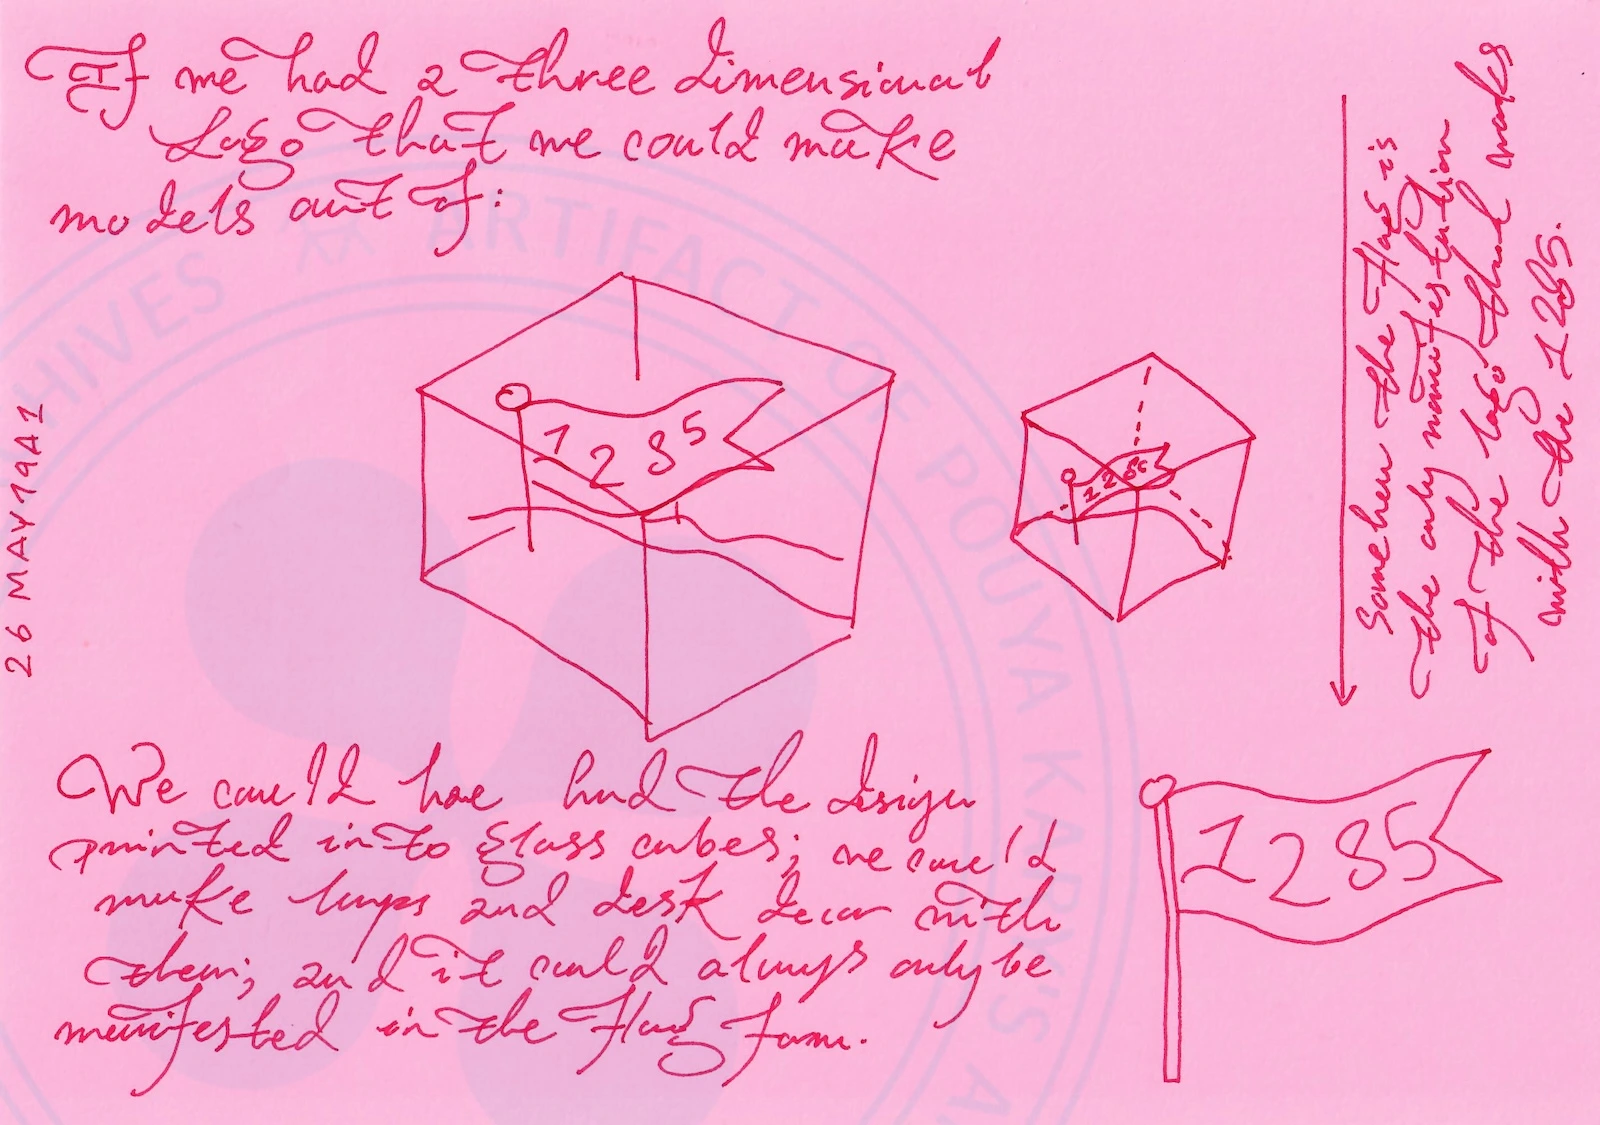 If we had a three dimensional
Logo that we could make
models out of:
1285
1285
We could have had the design
printed into glass cubes; we could
make lamps and desk decor with
them; and it could always only be
manifested in the Flag form.
1285
Somehow the Flag is
the only manifestation
of the logo that works
with the 1285.
26 MAY 19A1
ARCHIVES ARTIFACT OF POUYA KARMY'S